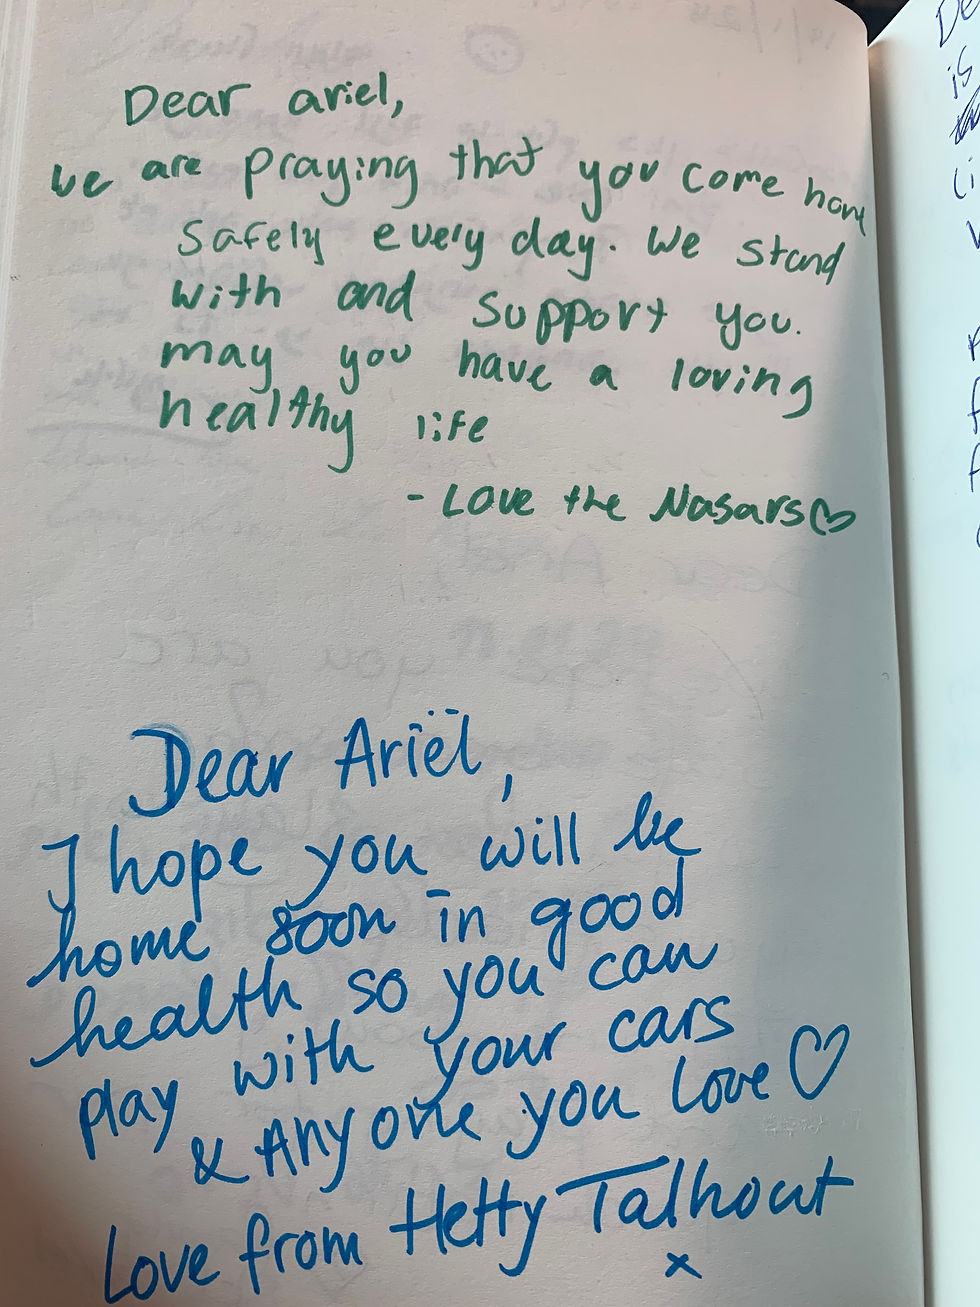 Dear ariel,
we are praying that you come home
safely every day. We stand
with and support you.
may you have a loving
healthy life
- Love the Nasars♡
Dear Ariël,
I hope you will be
home soon in good
health so you can
play with your cars
& Anyone you love ♡
Love from Hetty Talhout
x
De
is